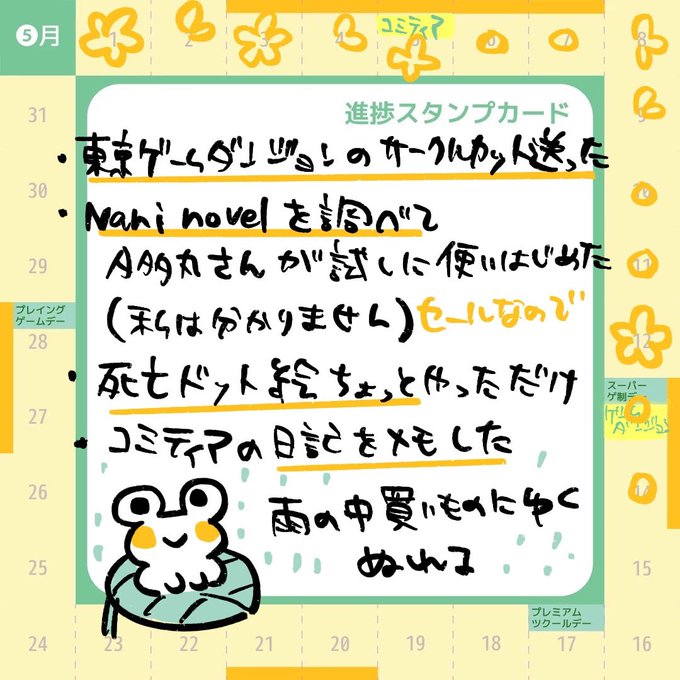 ❺月
1
2
3
4
コミティア
5
6
7
8
31
進捗スタンプカード
9
・東京ゲームダンジョンのサークルカット送った
30
10
・Nani novelを調べて
29
さんが試しに使いはじめた
11
プレイング
ゲームデー
(私は分かりません)セールなので
28
12
・死亡ドット絵ちょっとやっただけ
スーパー
ゲ制デー
27
ゲーム
ダンジョン
・コミティアの日記をメモした
26
雨の中買いものにゆく
25
ぬれる
15
プレミアム
ツクールデー
24
23
22
21
20
19
18
17
16